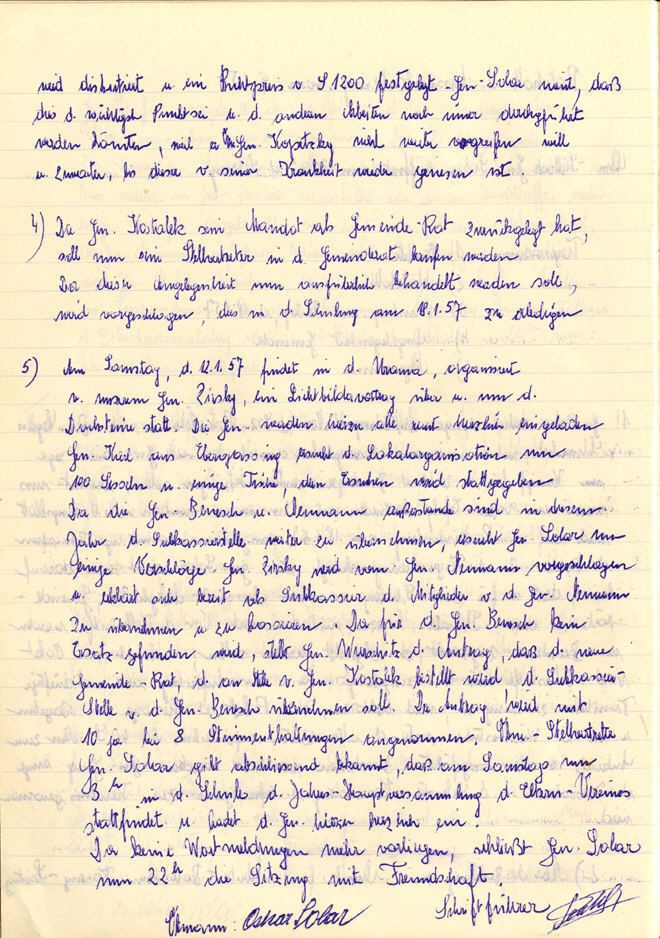 wird diskutiert u. ein Richtpreis v. S 1200 festgelegt - Gen. Solar meint, daß
dies d. wichtigste Punkt sei u. d. anderen Arbeiten noch immer durchgeführt
werden könnten, weil er Gen. Kopetzky nicht weiter vorgreifen will
u. zuwarten, bis dieser v. seiner Krankheit wieder genesen ist.
4) Da Gen. Kostalek sein Mandat als Gemeinde-Rat zurückgelegt hat,
soll nun sein Stellvertreter in d. Gemeinderat berufen werden
Da diese Angelegenheit nun ausführlich behandelt werden soll,
wird vorgeschlagen, dies in d. Sitzung am 18.1.57 zu erledigen
5) Am Samstag, d. 12.1.57 findet in d. Urania, organisiert
v. unserem Gen. Zirsky, ein Lichtbildervortrag über u. um d.
Dachsteine statt. Die Gen. werden hiezu alle recht herzlich eingeladen
Gen. Kiesl aus Ebergassing ersucht d. Lokalorganisation um
100 Sesseln u. einige Tische, dem Ersuchen wird stattgegeben
Da die Gen. Benesch u. Neumann außerstande sind in diesem
Jahr d. Subkassierstelle weiter zu übernehmen, ersucht Gen. Solar um
einige Vorschläge. Gen. Zirsky wird vom Gen. Neumann vorgeschlagen
u. erklärt sich bereit als Subkassier d. Mitglieder v. d. Gen. Neumann
zu übernehmen u. zu kassieren. Da für d. Gen. Benesch kein
Ersatz gefunden wird, stellt Gen. Wuschitz d. Antrag, daß d. neue
Gemeinde-Rat, d. an Stelle v. Gen. Kostalek bestellt wird d. Subkassier-
Stelle v. d. Gen. Benesch übernehmen soll. Der Antrag wird mit
10 ja bei 8 Stimmenthaltungen angenommen. Obm.-Stellvertreter
Gen. Solar gibt abschliessend bekannt, daß am Samstag um
3 h in d. Schule d. Jahres-Hauptversammlung d. Eltern-Vereines
stattfindet u. ladet d. Gen. hiezu herzlich ein.
Da keine Wortmeldungen mehr vorliegen, schließt Gen. Solar
um 22 h die Sitzung mit Freundschaft.
Obmann: Oskar Solar
Schriftführer